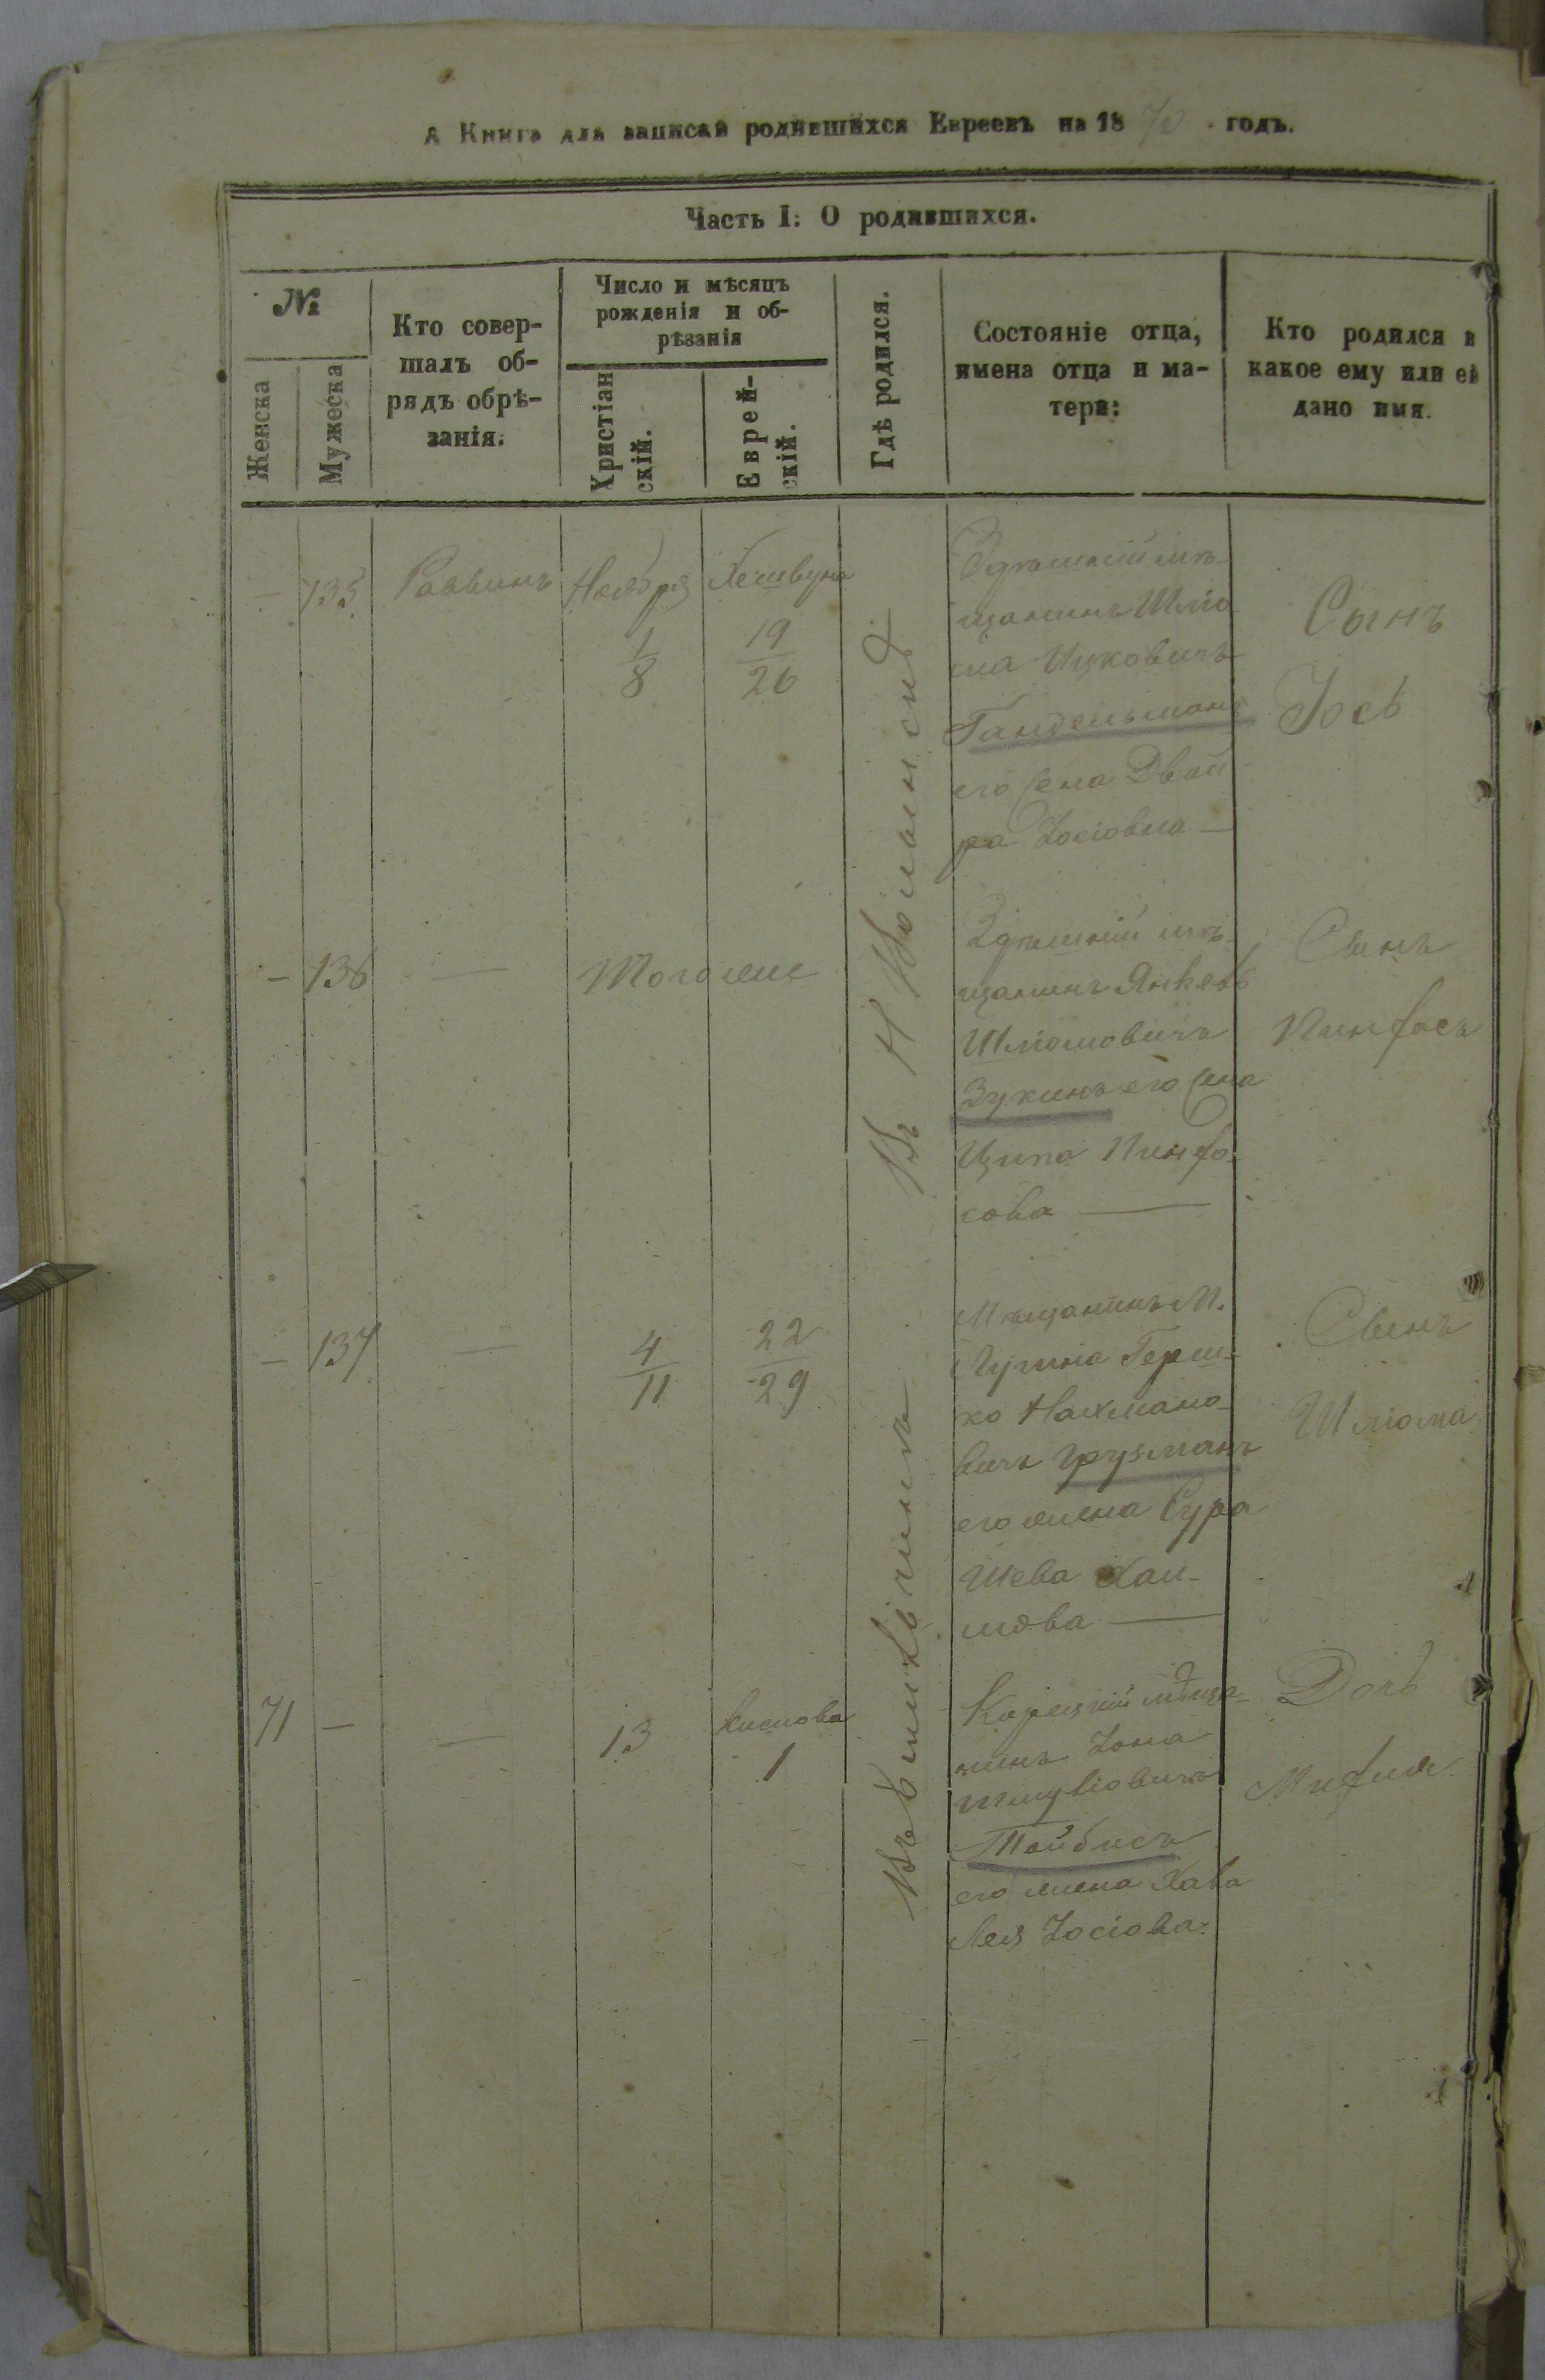 А Книга для записки родившихся Евреевъ на 1870 годъ.
Часть I: О родившихся.
№
Женска
Мужеска
Кто совер-
шалъ об-
рядъ обрѣ-
занія.
Число и мѣсяцъ
рожденія и об-
рѣзанія
Христіан
скій.
Еврей-
скій.
Гдѣ родился.
Состояніе отца,
имена отца и ма-
тери:
Кто родился и
какое ему или ей
дано имя.
— 135 Раввинъ Ноября Хешвуна
1/8 19/26
Здѣшній мѣ-
щанинъ Шлío
ма Ицковичъ
Гандельманъ
его жена Двой
ра Іосіовна —
Сынъ
Іось
— 136 — Тогоже
Здѣшній мѣ-
щанинъ Янкевъ
Шліомовичъ
Зукинъ его жена
Ципа Пинфо-
сова —
Сынъ
Пинфосъ
— 137 — 4/11 22/29
Мѣщанинъ М.
Герш-
ко Нахмано-
вичъ Грузманъ
его жена Сура
Шева Хаи-
мова —
Сынъ
Шліома
71 — — 13 Кислова
1
Корецкій мѣща-
нинъ Іона
Шмуліовичъ
Тайбисъ
его жена Хава
Лея Іосіова.
Дочь